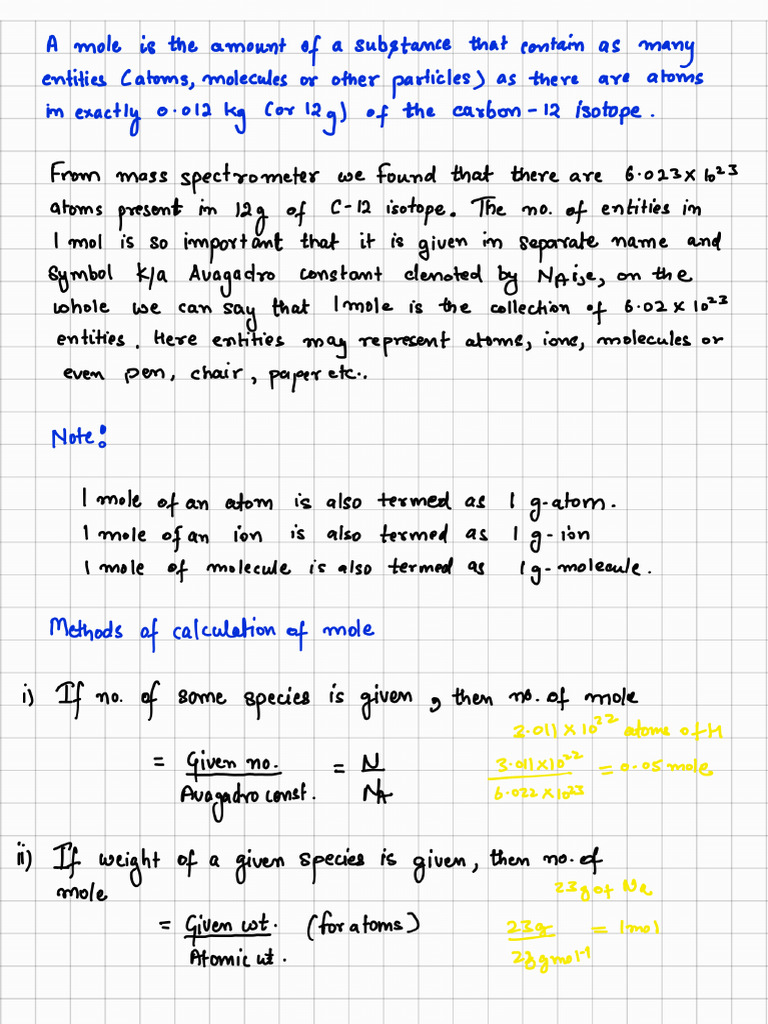 A mole is the amount of a substance that contain as many
entities (atoms, molecules or other particles) as there are atoms
in exactly 0.012 kg (or 12g) of the carbon-12 isotope.
From mass spectrometer we found that there are 6.023 x 10²³
atoms present in 12g of C-12 isotope. The no. of entities in
1 mol is so important that it is given in separate name and
symbol k/a Avagadro constant denoted by NA i.e, on the
whole we can say that 1 mole is the collection of 6.02 x 10²³
entities. Here entities may represent atoms, ions, molecules or
even pen, chair, paper etc..
Note:
1 mole of an atom is also termed as 1 g-atom.
1 mole of an ion is also termed as 1 g-ion
1 mole of molecule is also termed as 1g-molecule.
Methods of calculation of mole
i) If no. of some species is given, then no. of mole
= Given no. / Avagadro const. = N / NA
3.011 x 10²² atoms of H
3.011 x 10²² / 6.022 x 10²³ = 0.05 mole
ii) If weight of a given species is given, then no. of
mole
= Given wt. / Atomic wt. (for atoms)
23g of Na
23g / 23gmol⁻¹ = 1mol